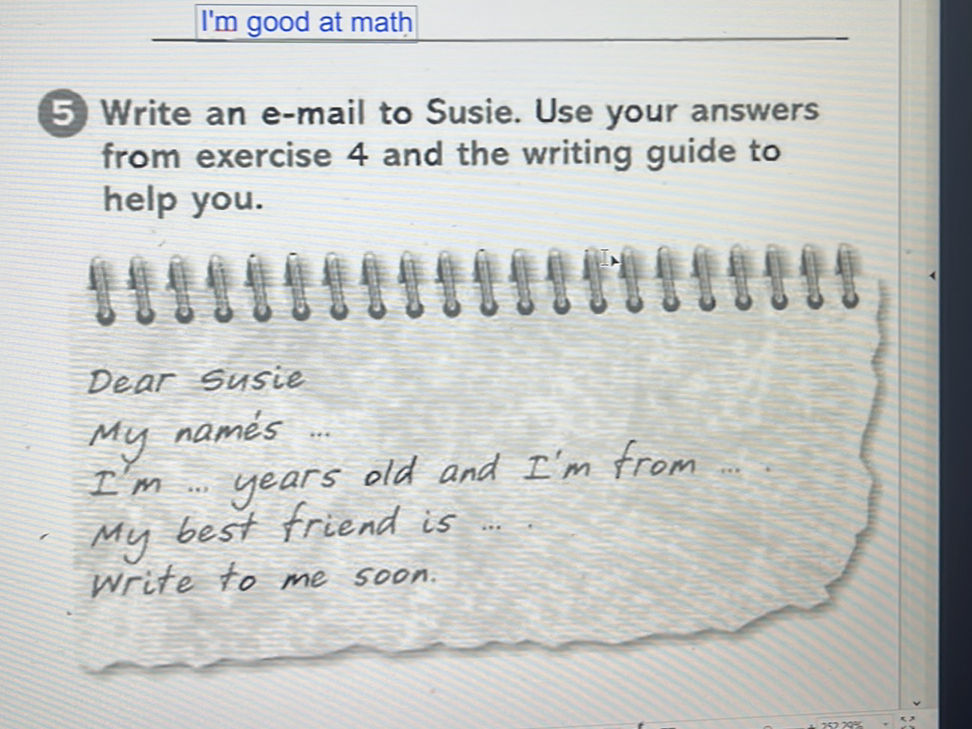 I'm good at math
5 Write an e-mail to Susie. Use your answers
from exercise 4 and the writing guide to
help you.
Dear Susie
My name's ...
I'm ... years old and I'm from ... .
My best friend is ... .
Write to me soon.
252.29%